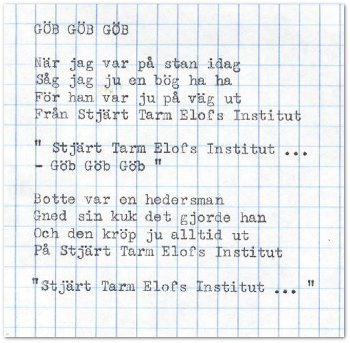 GÖB GÖB GÖB
När jag var på stan idag
Såg jag ju en bög ha ha
För han var ju på väg ut
Från Stjärt Tarm Elofs Institut
" Stjärt Tarm Elofs Institut ...
- Göb Göb Göb "
Botte var en hedersman
Gned sin kuk det gjorde han
Och den kröp ju alltid ut
På Stjärt Tarm Elofs Institut
"Stjärt Tarm Elofs Institut ... "